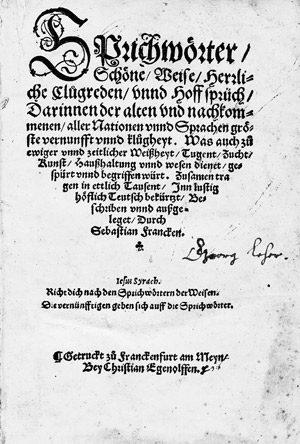 Sprichwörter/
Schöne/ Weise/ Herrli-
che Clůgreden/ vnnd Hoffsprüch/
Darinnen der alten vnd nachkom-
menen/ aller Nationen vnnd Sprachen grö-
ste vernunfft vnnd klůgheyt. Was auch zů
ewiger vnnd zeitlicher Weißheyt/ Tugent/ Zucht/
Kunst/ Haußhaltung vnnd wesen dienet/ ge-
spürt vnnd begriffen würt. Zusamen tra
gen in ettlich Tausent/ Inn lustig
höflich Teutsch bekürtzt/ Be-
schriben vnnd außge-
leget/ Durch
Sebastian Francken.
Georg
Iesus Syrach.
Richt dich nach den Sprichwörtern der Weisen.
Die vernünfftigen geben sich auff die Sprichwörter.
Getruckt zů Franckenfurt am Meyn/
Bey Christian Egenolffen.